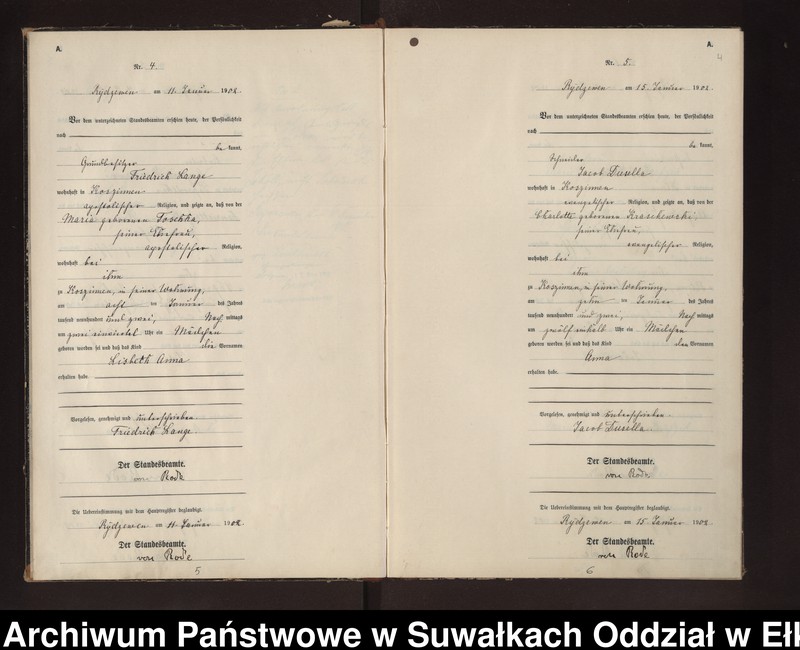 A.
Nr. 4.
Rydzewen am 11. Januar 1902.
Vor dem unterzeichneten Standesbeamten erschien heute, der Persönlichkeit
nach
be kannt,
Grundbesitzer
Friedrich Lange
wohnhaft in Koszinnen
apostolischer Religion, und zeigte an, daß von der
Maria geborenen
seiner Ehefrau,
apostolischer Religion,
wohnhaft bei
ihm
zu Koszinnen, in seiner Wohnung,
am acht ten Januar des Jahres
tausend neunhundert und zwei, Nach mittags
um zwei einviertel Uhr ein Mädchen
geboren worden sei und daß das Kind die Vornamen
Lisbeth Anna
erhalten habe.
Vorgelesen, genehmigt und unterschrieben.
Friedrich Lange.
Der Standesbeamte.
von Rode
Die Uebereinstimmung mit dem Hauptregister beglaubigt.
Rydzewen am 11. Januar 1902.
Der Standesbeamte.
von Rode
5
A.
4
Nr. 5.
Rydzewen am 15. Januar 1902.
Vor dem unterzeichneten Standesbeamten erschien heute, der Persönlichkeit
nach
be kannt,
Schneider
Jacob Dusella
wohnhaft in Koszinnen
evangelischer Religion, und zeigte an, daß von der
Charlotte geborenen
seiner Ehefrau,
evangelischer Religion,
wohnhaft bei
ihm
zu Koszinnen, in seiner Wohnung,
am zehn ten Januar des Jahres
tausend neunhundert und zwei, Nach mittags
um zwölf einhalb Uhr ein Mädchen
geboren worden sei und daß das Kind den Vornamen
Anna
erhalten habe.
Vorgelesen, genehmigt und unterschrieben.
Jacob Dusella.
Der Standesbeamte.
von Rode
Die Uebereinstimmung mit dem Hauptregister beglaubigt.
Rydzewen am 15. Januar 1902
Der Standesbeamte.
von Rode
6
Archiwum Państwowe w Suwałkach Oddział w Ełk